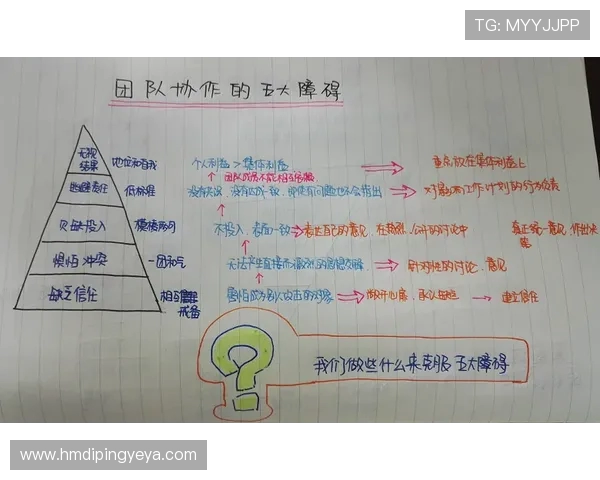 TG: MYYJJPP
团队协作的五大障碍
无视结果 地位和自我 个人利益 > 集体利益 重点放在集体利益上
逃避责任 低标准 没有共识、没有达成一致，即使有问题也不会指出 对影响工作计划的行为负责
欠缺投入 模棱两可 不投入，表面一致 表达自己的意见，在热烈、公开的讨论中 真正统一意见，作出决策
惧怕冲突 一团和气 无法产生直接而激烈的思想交锋 针对性的讨论、意见
缺乏信任 相互戒备 害怕成为别人攻击的对象 敞开心扉，承认缺陷 建立信任
我们做些什么来克服五大障碍
www.hmdipingyeya.com